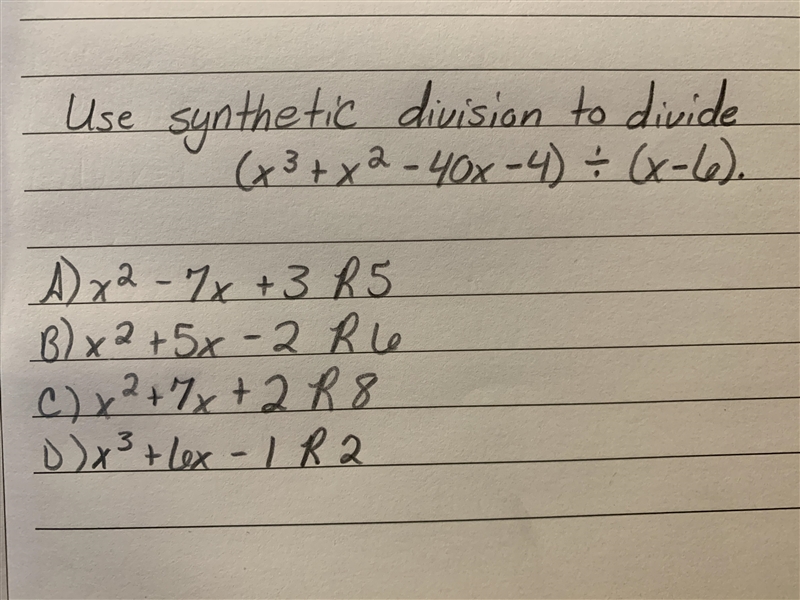 Use synthetic division to divide
(x³ + x² - 40x - 4) ÷ (x - 6).
A) x² - 7x + 3 R 5
B) x² + 5x - 2 R 6
C) x² + 7x + 2 R 8
D) x³ + 6x - 1 R 2